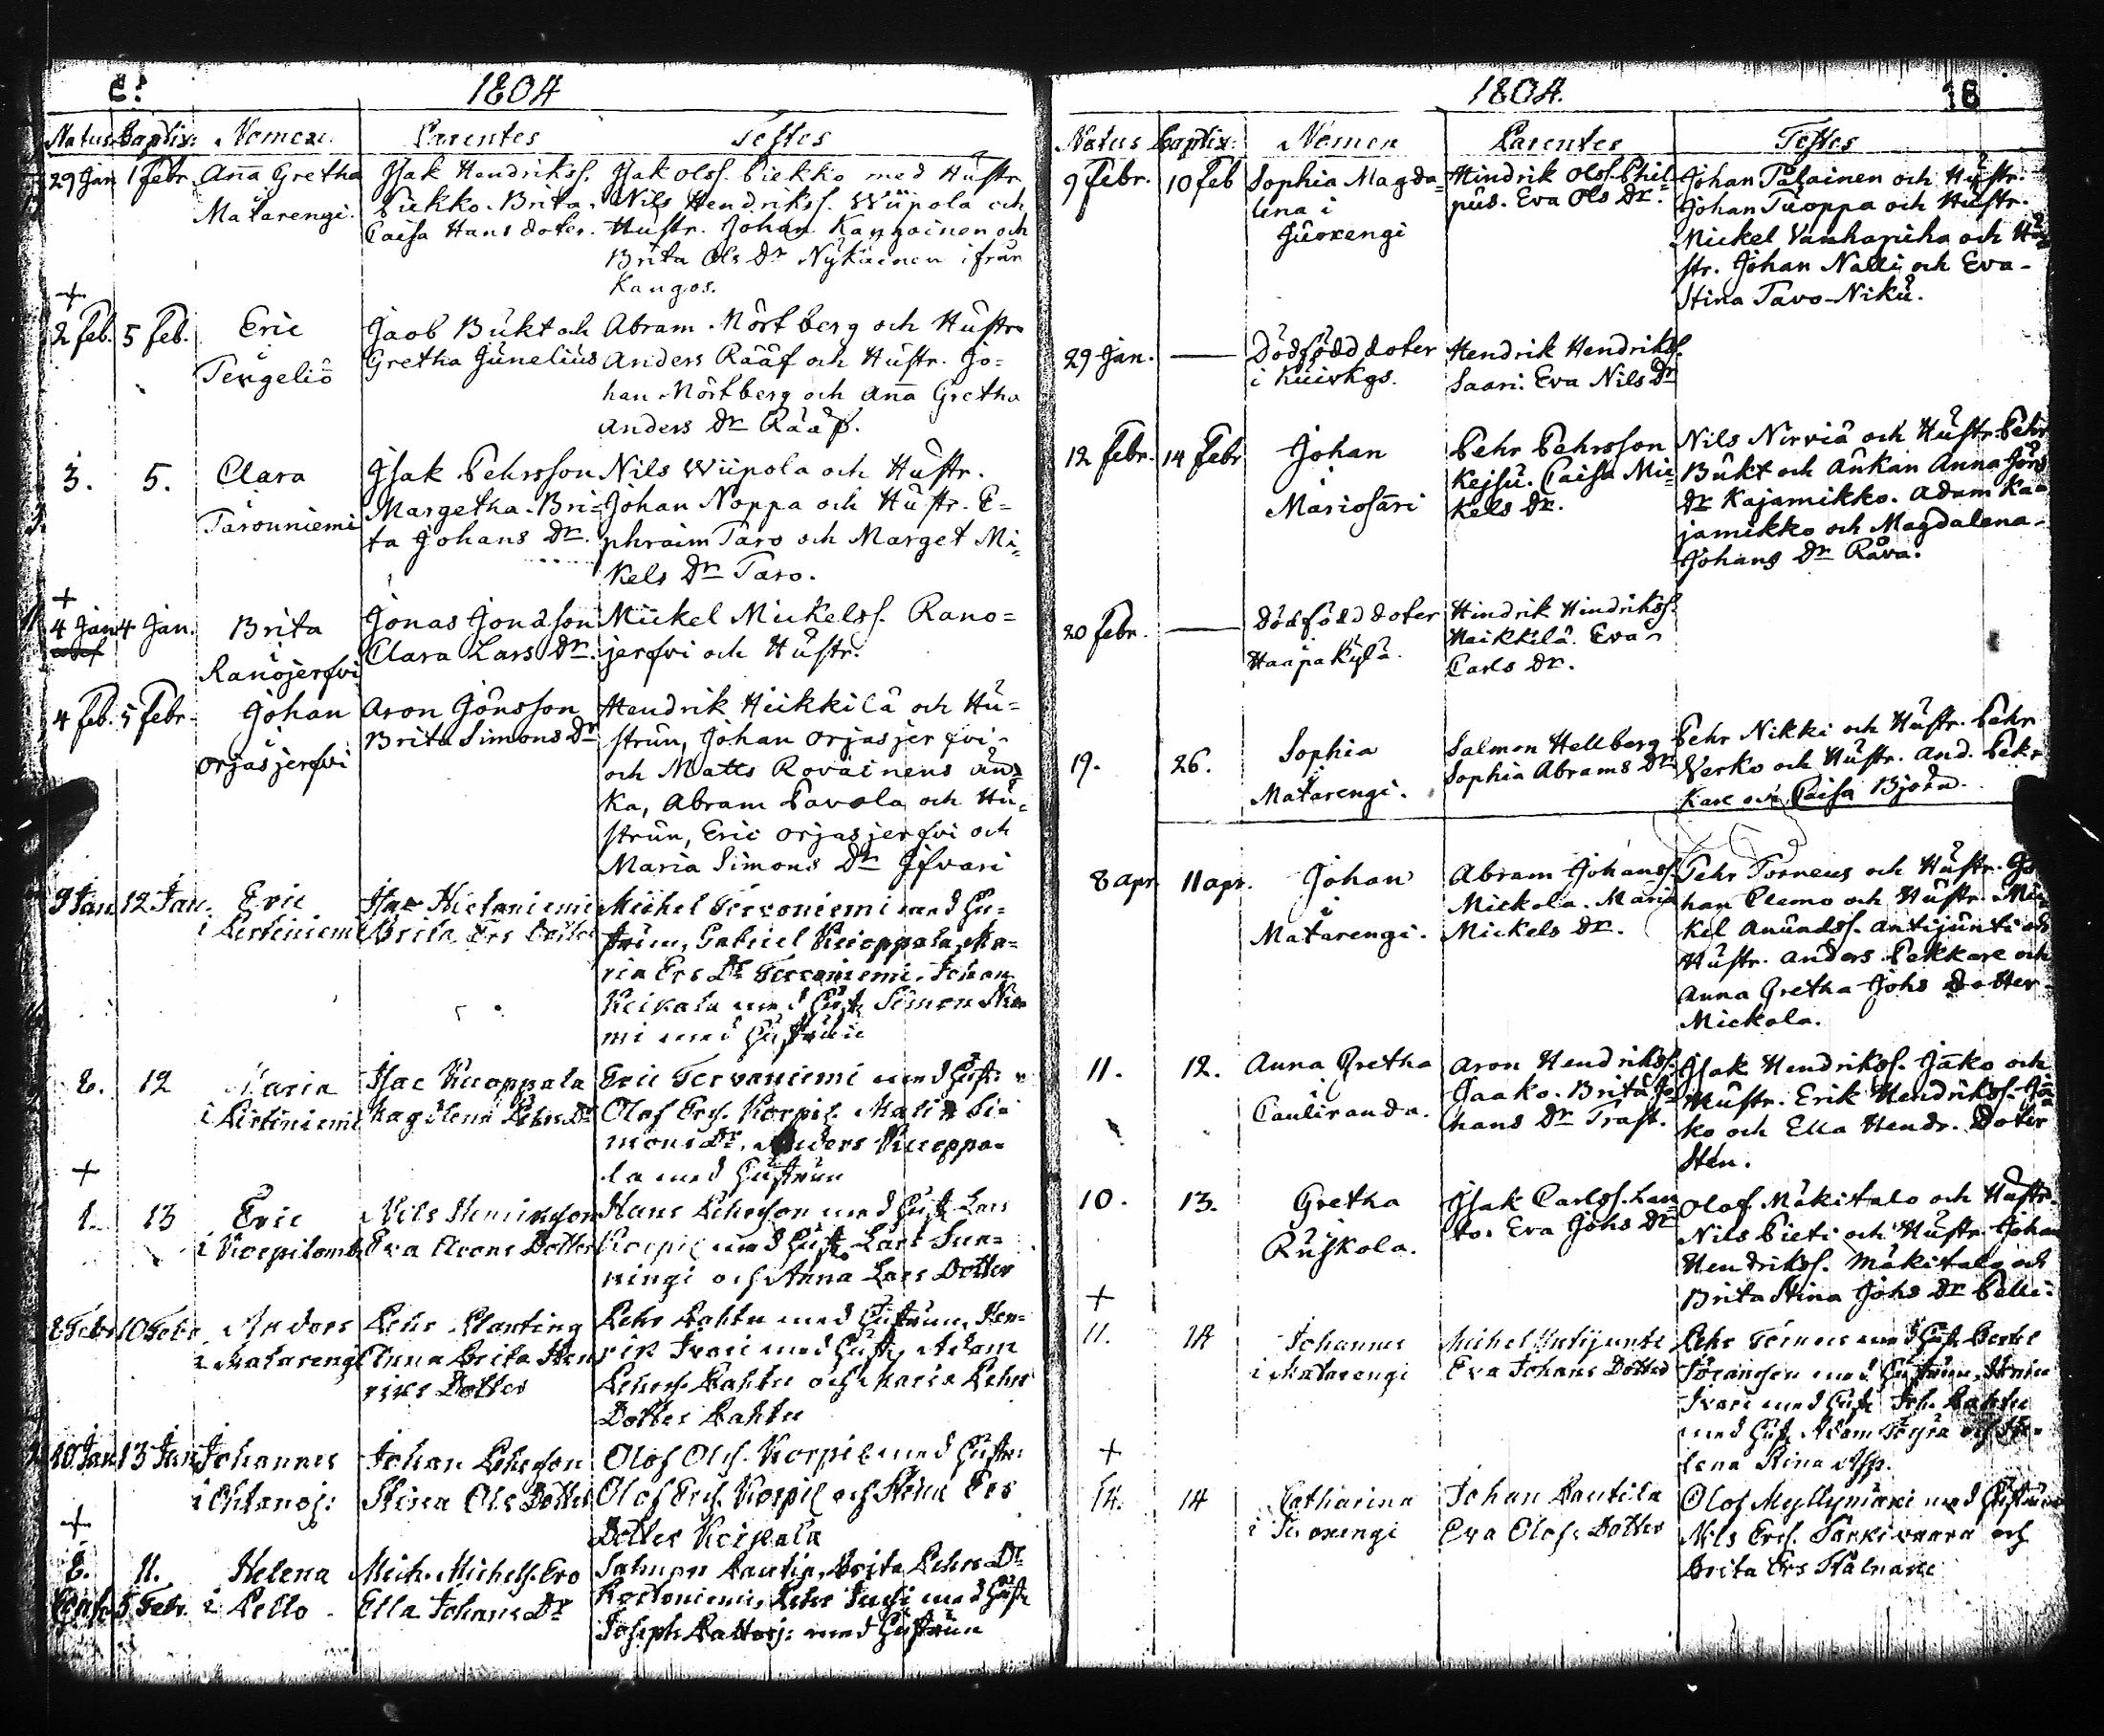 1804
Natus Baptiz: Nomen. Parentes Testes
29 Jan 1 Febr. Anna Gretha
i
Matarengi.
Isak Hendrikss.
Piekko. Brita
Caisa Hans doter.
Isak Olss. Piekko med Hustr.
Nils Hendrikss. Wiipola och
Hustr. Johan Kangainen och
Brita Ols Dr Nykäinen ifrån
Kangos.
+
2 Feb. 5 Feb. Eric
i
Tengeliö
Jaob Bukt och
Gretha Junelius
Abram Mörtberg och Hustr.
Anders Rääf och Hustr. Jo=
han Mörtberg och Anna Gretha
Anders Dr Rääf.
3. 5. Clara
i
Tarouniemi
Isak Pehrsson
Margetha. Bri=
ta Johans Dr.
Nils Wiipola och Hustr.
Johan Noppa och Hustr. E=
phraim Taro och Marget Mi=
kels Dr Taro.
+
4 Jan 4 Jan. Brita
i
Ranojerfvi
Jonas Jonasson
Clara Lars Dr.
Mickel Mickelss. Rano=
jerfvi och Hustr.
4 Feb. 5 Febr. Johan
i
Orjasjerfvi
Aron Jönsson
Brita Simons Dr
Hendrik Heikkilä och Hu=
strun, Johan Orjasjerfvi
och Matts Roväinens än=
ka, Abram Pavola och Hu=
strun, Eric Orjasjerfvi och
Maria Simons Dr Ifvari
9 Jan 12 Jan. Eric
i Pertiniemi
Isac Hietaniemi
Brita Ers Dotter
Michel Tervoniemi med Hu=
strun, Gabriel Kuoppala, Ma=
ria Ers Dr Tervaniemi, Johan
Keikala med Hust. Simon
mi med Hustrun
12 Maria
i Pertiniemi
Isac Kuoppala
Magdlena Pehrs Dr
Eric Tervaniemi med Hust.
Olof Ers. Korpil. Si=
mons Dr. Anders Kuoppa=
la med Hustrun
+
13 Eric
i Korpilomb.
Nils Henricsson
Eva Arons Dotter
Hans Pehrsson med Hust. Lars
Korpil. med Hust. Lars Sun=
ningi och Anna Lars Dotter
8 Febr 10 Febr. Anders
i Matarengi
Pehr Planting
Anna Brita Hen
rics Dotter
Pehr Lahti med Hustrun, Hen=
ric Ivari med Hust. Adam
Pehrs. Lahti och Maria Pehrs
Dotter Lahti
10 Jan 13 Jan Johannes
i Ohtanaj:
Johan Pehrsson
Stina Ols Dotter
Olof Ols. Korpil. med Hustr.
Olof Ers. Korpil. och Helena Ers
Dotter Keikala
+
11. Helena
5 Febr. i Pello
Mich. Michelss. Ero
Ella Johans Dr
Salmon Lantio, Brita Pehrs Dr
Kortoniemi, Pehr Juusi med Hust.
Joseph Lattaj: med Hustrun
1804. 18
Natus Baptiz: Nomen Parentes Testes
9 Febr. 10 Feb Sophia Magda=
lena i
Juoxengi
Hindrik Olss. Phil=
pus. Eva Ols Dr.
Johan Palainen och Hustr.
Johan Tuoppa och Hustr.
Mickel Vanhapiha och Hu=
str. Johan Nalli och Eva
Stina Tavo-Niku.
29 Jan. — Dödfödd doter
i Kuivkgs.
Hendrik Hendrikss.
Saari. Eva Nils Dr
12 Febr. 14 Febr Johan
i
Mariosari
Pehr Pehrsson
Kejsu. Caisa Mi=
kels Dr.
Nils Nirviä och Hustr. Pehr
Bukt och Änkan Anna Jöns
Dr Kajamikko. Adam Ka=
jamikko och Magdalena
Johans Dr Rava.
20 Febr. — Dödfödd doter
Haapakylä.
Hindrik Hindrikss.
Heikkilä. Eva
Carls Dr.
19. 26. Sophia
i
Matarengi.
Salmon Hellberg
Sophia Abrams Dr
Pehr Nikki och Hustr. Pehr
Verko och Hustr. And. Pek=
kare och Caisa Björn.
8 Apr. 11 Apr. Johan
i
Matarengi.
Abram Johanss.
Mickola. Maria
Mickels Dr.
Pehr Torneus och Hustr. Jo=
han Clemo och Hustr. Mic=
kel Anundss. Antijunti och
Hustr. Anders Pekkare och
Anna Gretha Johs Dotter
Mickola.
11. 12. Anna Gretha
i
Cauliranda.
Aron Hendrikss.
Jaako. Brita Jo=
hans Dr Trast.
Isak Hendrikss. Jako och
Hustr. Erik Hendrikss. Ja=
ko och Ella Hendr. Doter
Sten.
10. 13. Gretha
i
Ruskola.
Isak Carlss. Lan
to. Eva Johs Dr
Olof Mäkitalo och Hustr.
Nils Pieti och Hustr. Johan
Hendrikss. Mäkitalo och
Brita Stina Johs Dr Pelli.
+
11. 14 Johannes
i Matarengi
Michel Antijunti
Eva Johans Dotter
Pehr Törneus med Hust. Bertel
Göransson med Hustrun, Henric
Ivari med Hust. Joh. Lahti
med Hust. Adam Töyrä och He=
lena Stina Asp.
+
14. 14 Catharina
i Juoxengi
Johan Lautila
Eva Olofs Dotter
Olof Myllymäki med Hustrun
Nils Ers. Särkivaara och
Brita Ers Stålnacke